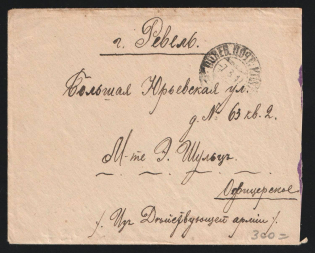 г. Ревель.
Большая Юрьевская ул.
д. № 63 кв. 2.
М-me Э. Шульц.
Офицерское
/. Из Действующей армии /.
300=